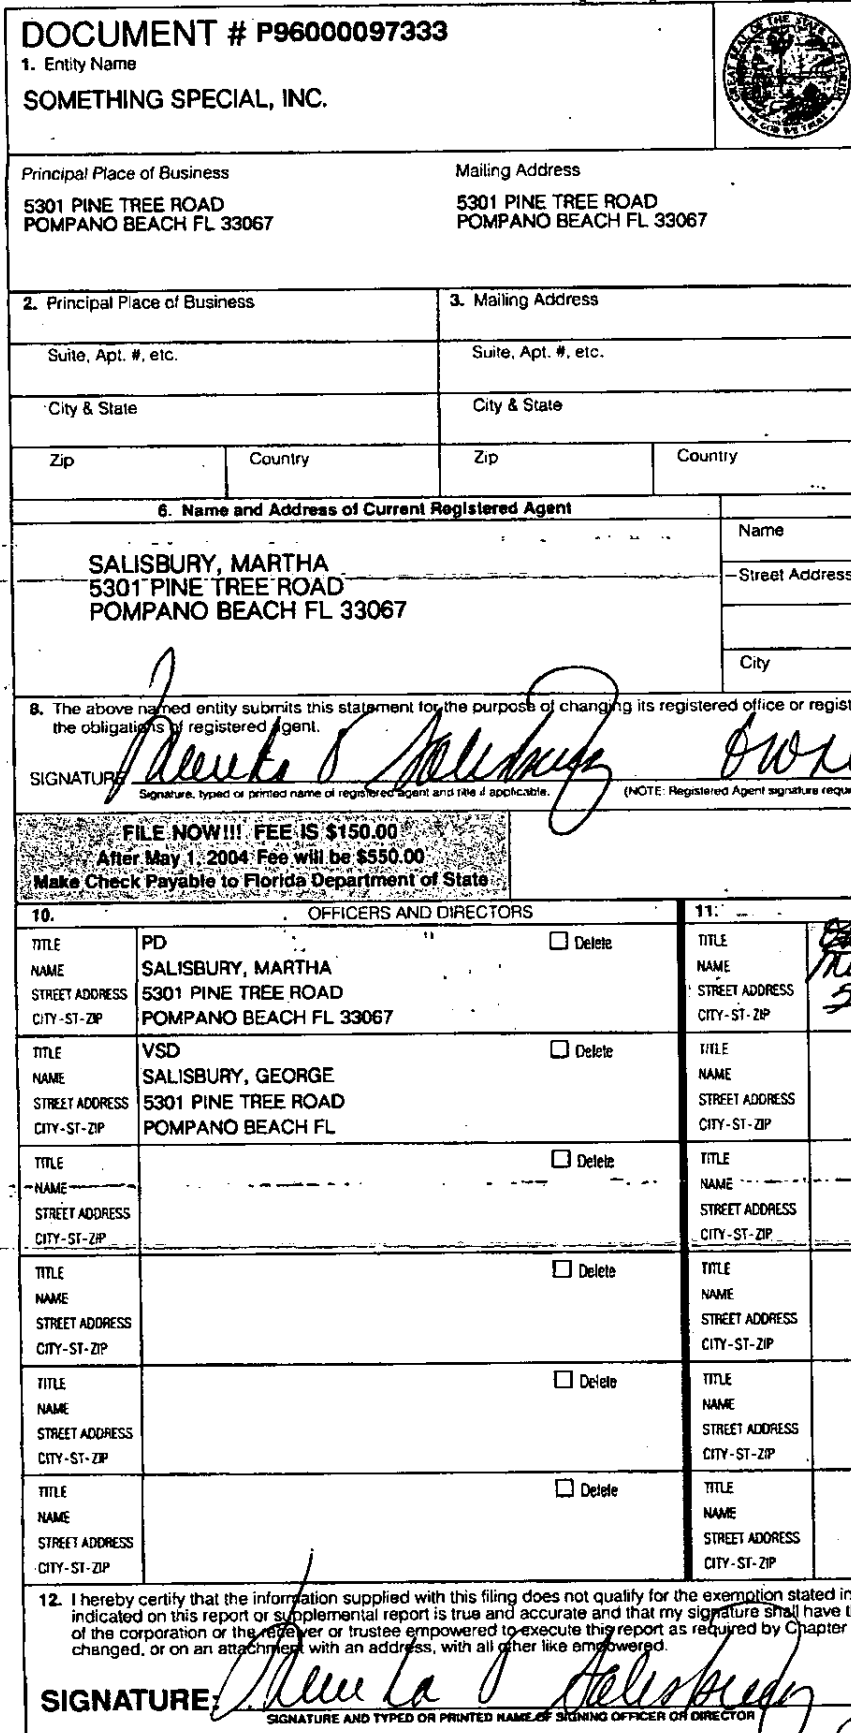 DOCUMENT # P96000097333
1. Entity Name
SOMETHING SPECIAL, INC.
GREAT SEAL OF THE STATE OF FLORIDA
IN GOD WE TRUST
Principal Place of Business
Mailing Address
5301 PINE TREE ROAD
POMPANO BEACH FL 33067
5301 PINE TREE ROAD
POMPANO BEACH FL 33067
2. Principal Place of Business
3. Mailing Address
Suite, Apt. #, etc.
Suite, Apt. #, etc.
City & State
City & State
Zip
Country
Zip
Country
6. Name and Address of Current Registered Agent
Name
SALISBURY, MARTHA
5301 PINE TREE ROAD
POMPANO BEACH FL 33067
Street Address
City
8. The above named entity submits this statement for the purpose of changing its registered office or regist
the obligations of registered agent.
SIGNATURE
Signature, typed or printed name of registered agent and title if applicable.
(NOTE: Registered Agent signature requ
FILE NOW!!! FEE IS $150.00
After May 1, 2004 Fee will be $550.00
Make Check Payable to Florida Department of State
10. OFFICERS AND DIRECTORS
11.
TITLE PD Delete
NAME SALISBURY, MARTHA
STREET ADDRESS 5301 PINE TREE ROAD
CITY-ST-ZIP POMPANO BEACH FL 33067
TITLE
NAME
STREET ADDRESS
CITY-ST-ZIP
TITLE VSD Delete
NAME SALISBURY, GEORGE
STREET ADDRESS 5301 PINE TREE ROAD
CITY-ST-ZIP POMPANO BEACH FL
TITLE
NAME
STREET ADDRESS
CITY-ST-ZIP
TITLE Delete
NAME
STREET ADDRESS
CITY-ST-ZIP
TITLE
NAME
STREET ADDRESS
CITY-ST-ZIP
TITLE Delete
NAME
STREET ADDRESS
CITY-ST-ZIP
TITLE
NAME
STREET ADDRESS
CITY-ST-ZIP
TITLE Delete
NAME
STREET ADDRESS
CITY-ST-ZIP
TITLE
NAME
STREET ADDRESS
CITY-ST-ZIP
TITLE Delete
NAME
STREET ADDRESS
CITY-ST-ZIP
TITLE
NAME
STREET ADDRESS
CITY-ST-ZIP
12. I hereby certify that the information supplied with this filing does not qualify for the exemption stated in
indicated on this report or supplemental report is true and accurate and that my signature shall have t
of the corporation or the receiver or trustee empowered to execute this report as required by Chapter
changed, or on an attachment with an address, with all other like empowered.
SIGNATURE:
SIGNATURE AND TYPED OR PRINTED NAME OF SIGNING OFFICER OR DIRECTOR